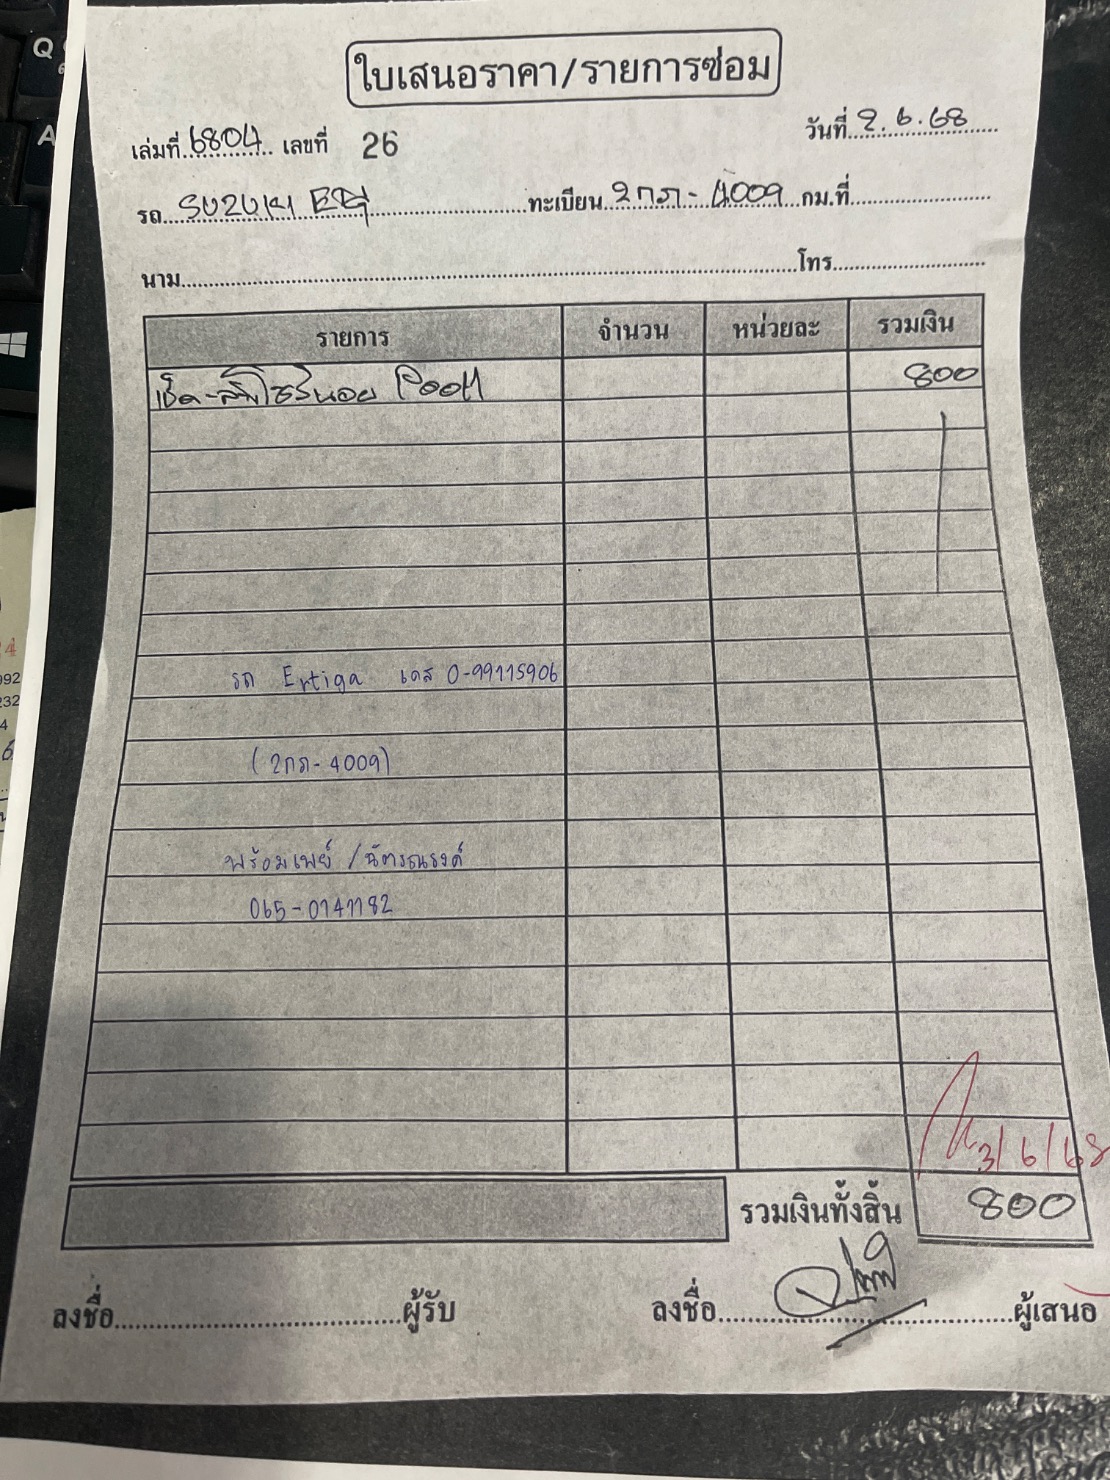 ใบเสนอราคา/รายการซ่อม
เล่มที่ 6804 เลขที่ 26 วันที่ 2.6.68
รถ SUZUKI ทะเบียน 2กภ-4009 กม.ที่
นาม โทร
รายการ จำนวน หน่วยละ รวมเงิน
800
รถ Ertiga เคส 0-99115906
(2กภ-4009)
พร้อมเพย์ /ฉัตรณรงค์
065-0141182
3/6/68
รวมเงินทั้งสิ้น 800
ลงชื่อ ผู้รับ ลงชื่อ ผู้เสนอ